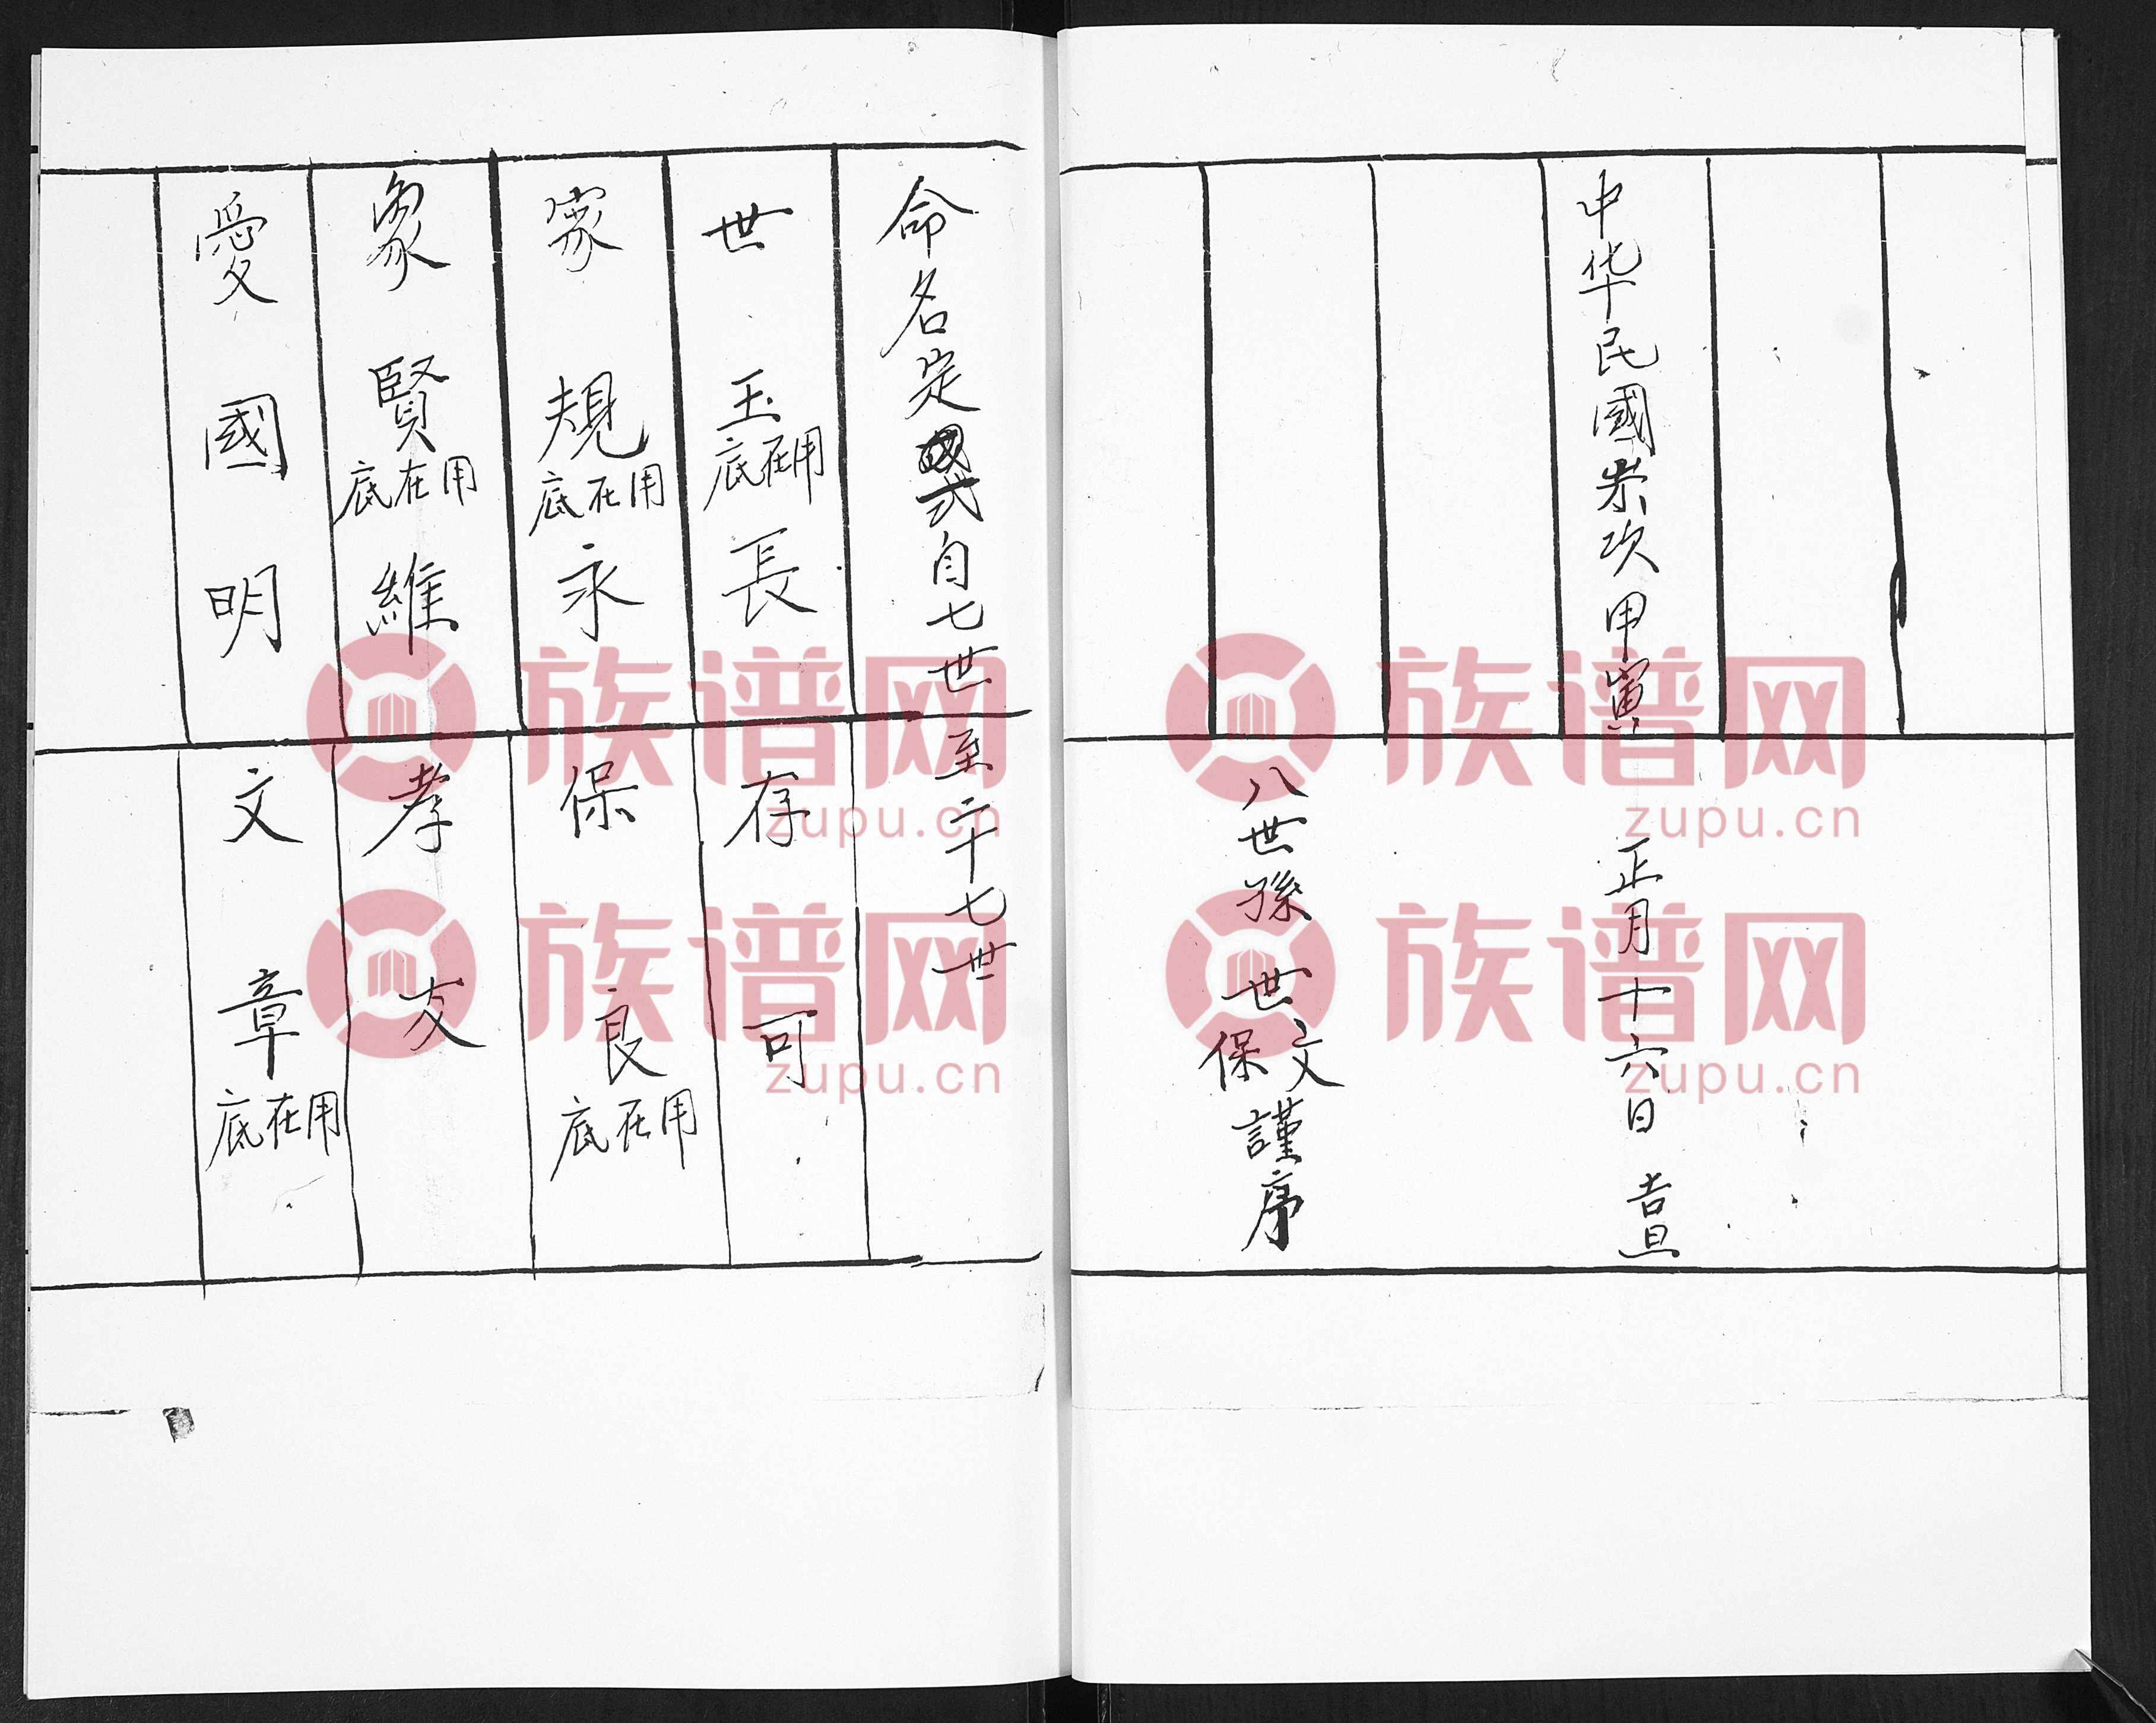 中华民國岽次甲寅 正月十六日 吉旦
八世孫 世文 保 謹序
命名定 式自七世至二十七世
世 玉底在用 長 存 可
家 規底在用 永 保 良底在用
象 賢底在用 維 孝 友
愛 國 明 文 章底在用
族谱网 zupu.cn
族谱网 zupu.cn
族谱网 zupu.cn
族谱网 zupu.cn